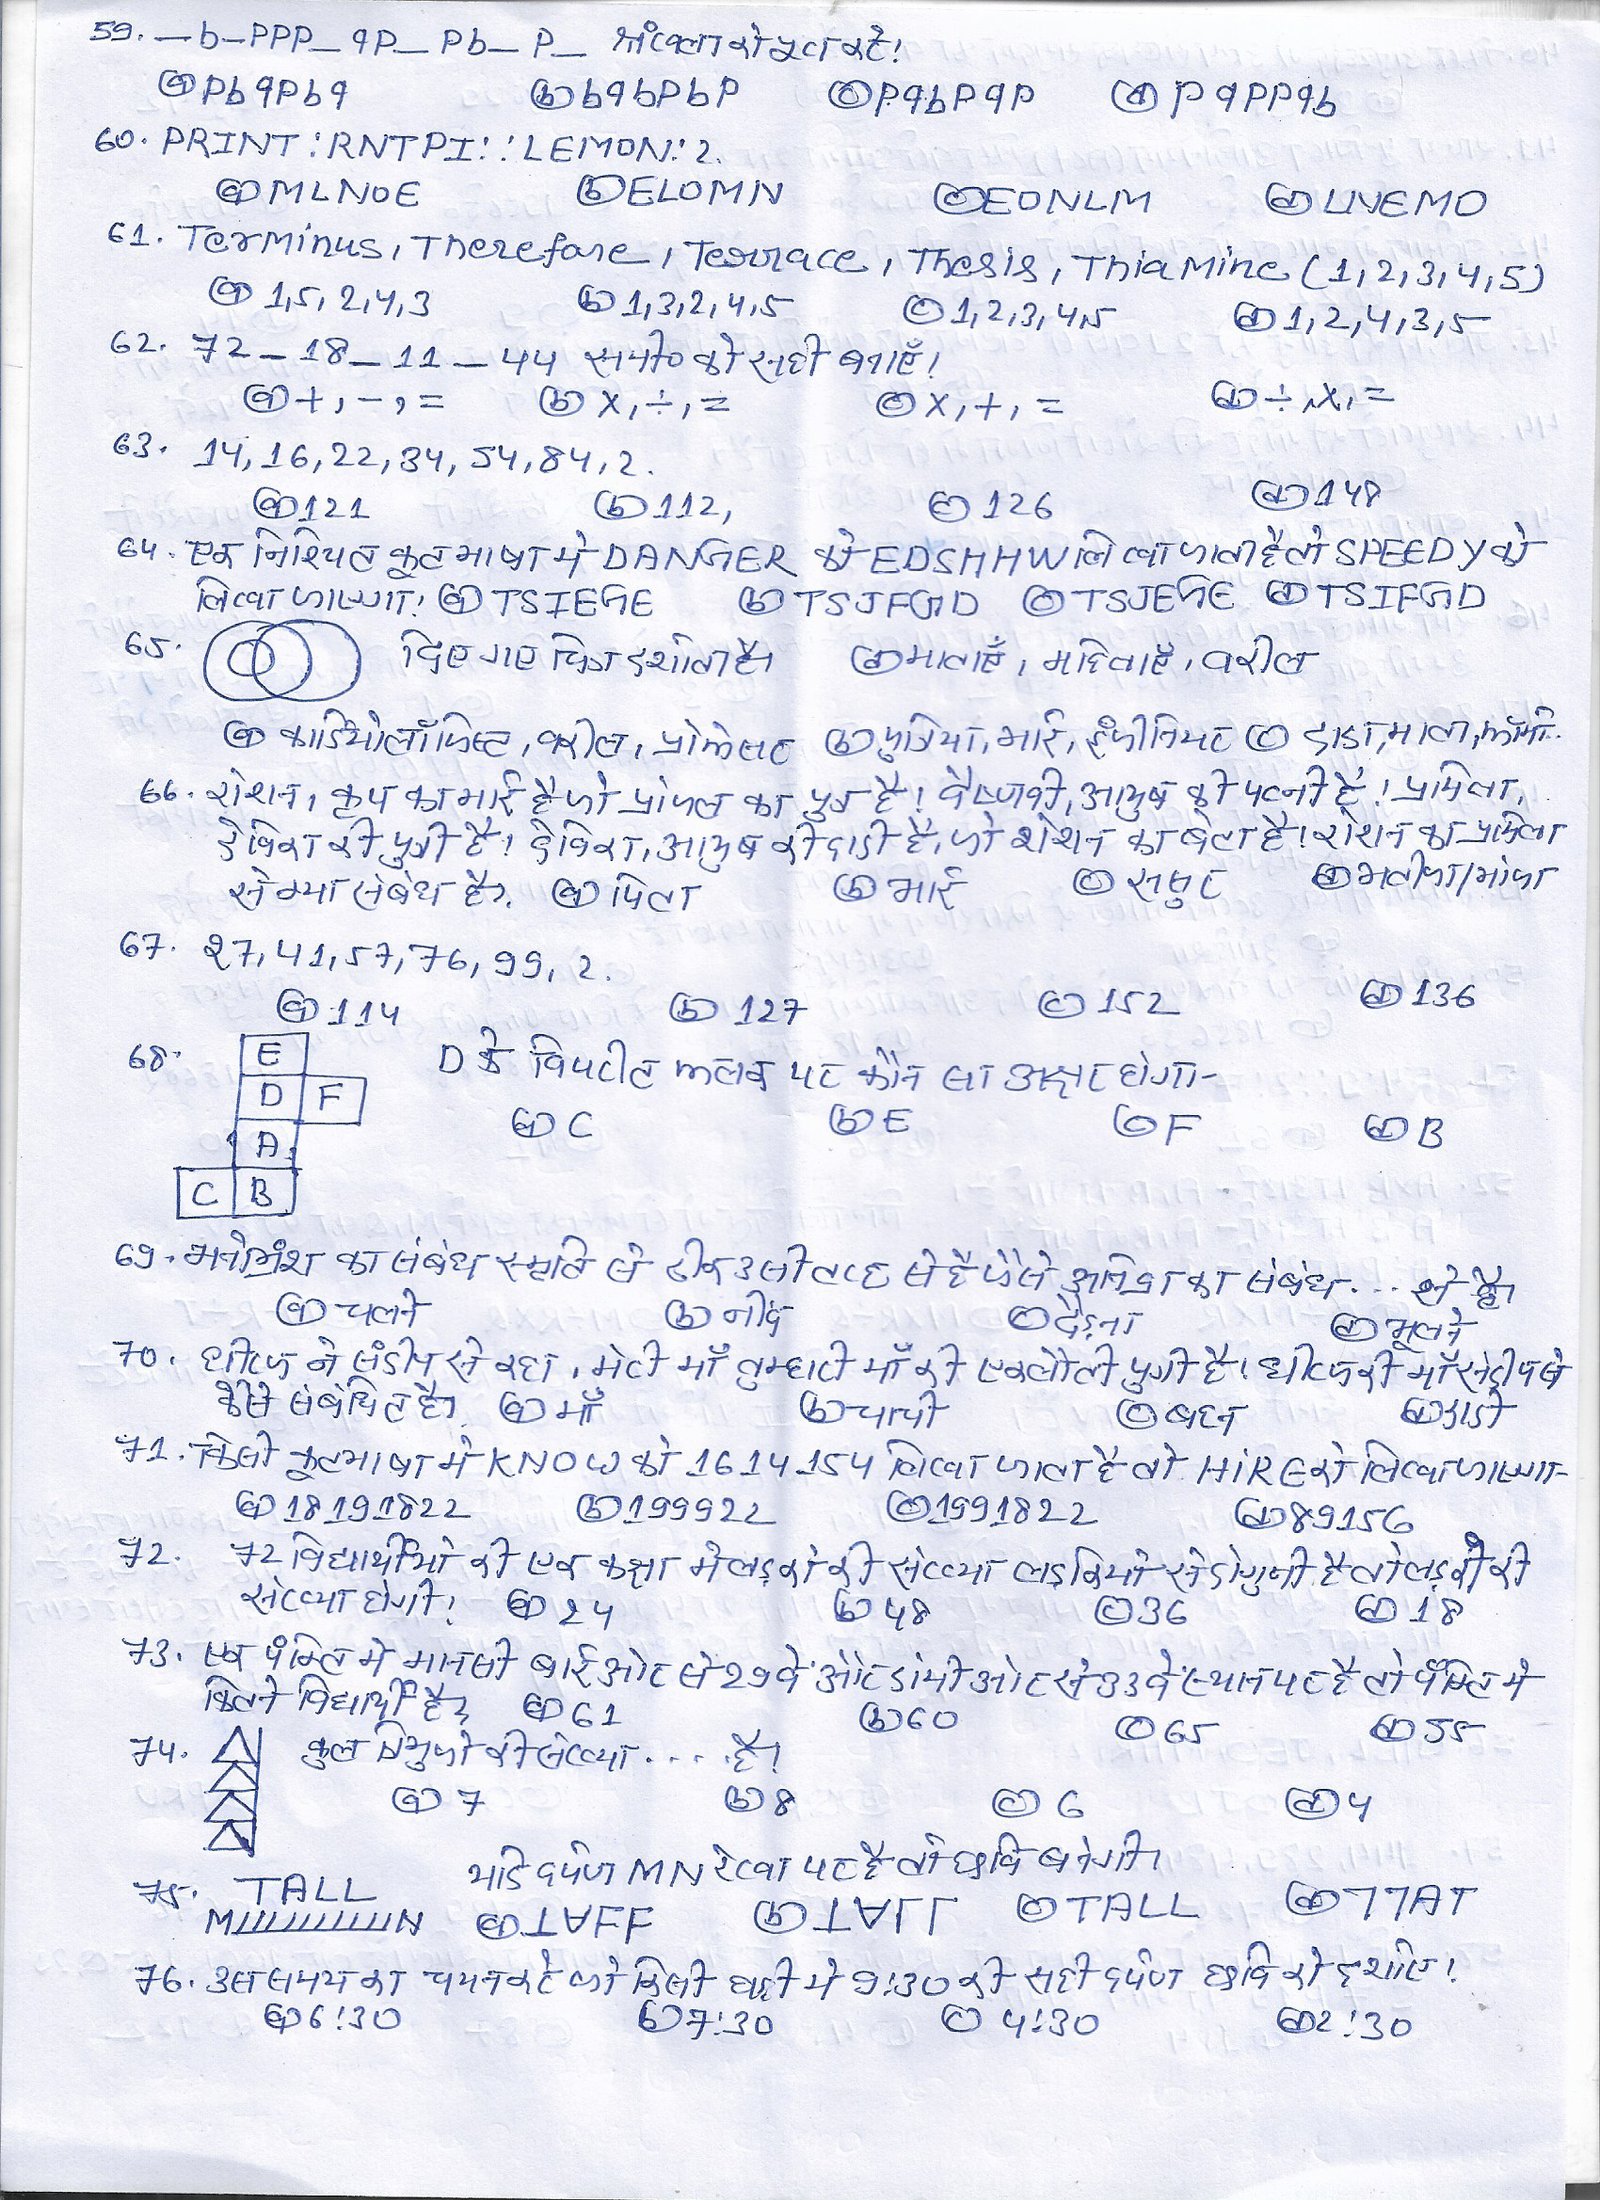 59. _b_PPP_qP_ Pb_ P_ श्रृंखला को पूरा करें!
ⓐ Pbqpbq ⓑ bqbPbP ⓒ PqbPqP ⓓ PqPPqb
60. PRINT : RNTPI : : LEMON : ?.
ⓐ MLNOE ⓑ ELOMN ⓒ EONLM ⓓ LNEMO
61. Terminus, Therefore, Terrace, Thesis, Thiamine (1,2,3,4,5)
ⓐ 1,5,2,4,3 ⓑ 1,3,2,4,5 ⓒ 1,2,3,4,5 ⓓ 1,2,4,3,5
62. 72 _ 18 _ 11 _ 44 समी० को सही बनाएँ!
ⓐ +, -, = ⓑ ×, ÷, = ⓒ ×, +, = ⓓ ÷, ×, =
63. 14, 16, 22, 34, 54, 84, ?.
ⓐ 121 ⓑ 112, ⓒ 126 ⓓ 148
64. एक निश्चित कूट भाषा मे DANGER को EDSHHW लिखा जाता है तो SPEEDY को
लिखा जाएगा! ⓐ TSIEGE ⓑ TSJFGD ⓒ TSJEGE ⓓ TSIFGD
65. दिए गए चित्र दर्शाता है। ⓐ माताएँ, महिलाएँ, वकील
ⓐ कार्डियोलॉजिस्ट, वकील, प्रोफेसर ⓑ पुत्रिया, भाई, इंजीनियर ⓒ दादा, माता,
66. रोशन, का भाई है जो प्रांजल का पुत्र है! वैष्णवी, आयुष की पत्नी है! प्रमिला,
देविका की पुत्री है! देविका, आयुष की दादी है, जो रोशन का बेटा है! रोशन का प्रमिला
से क्या संबंध है?. ⓐ पिता ⓑ भाई ⓒ ससुर ⓓ भतीजा/भांजा
67. 27, 41, 57, 76, 99, ?.
ⓐ 114 ⓑ 127 ⓒ 152 ⓓ 136
68. D के विपरीत फलक पर कौन सा अक्षर होगा-
ⓐ C ⓑ E ⓒ F ⓓ B
E
D F
A
C B
69. मनोभ्रंश का संबंध स्मृति से ठीक उसी तरह से है जैसे अनिद्रा का संबंध... से है।
ⓐ चलने ⓑ नींद ⓒ दौड़ना ⓓ भूलने
70. धीरज ने संदीप से कहा, मेरी माँ तुम्हारी माँ की एकलौती पुत्री है! धीरज की माँ संदीप से
कैसे संबंधित है। ⓐ माँ ⓑ चाची ⓒ बहन ⓓ दादी
71. किसी कूटभाषा मे KNOW को 1614154 लिखा जाता है तो HIRE को लिखा जाएगा-
ⓐ 18191822 ⓑ 199922 ⓒ 1991822 ⓓ 89156
72. 72 विद्यार्थीयो की एक कक्षा मे लड़को की संख्या लड़कियो से दोगुनी है तो लड़को की
संख्या होगी! ⓐ 24 ⓑ 48 ⓒ 36 ⓓ 18
73. एक पंक्ति मे मानसी बाई ओर से 29 वें और दांयी ओर से 33 वे स्थान पर है तो पंक्ति मे
कितने विद्यार्थी है? ⓐ 61 ⓑ 60 ⓒ 65 ⓓ 55
74. कुल त्रिभुजो की संख्या .... है!
ⓐ 7 ⓑ 8 ⓒ 6 ⓓ 4
यदि दर्पण MN रेखा पर है तो छवि बनेगी।
75. TALL
M N ⓐ ⓑ ⓒ TALL ⓓ
76. उस समय का चयन करे जो किसी घड़ी मे 9:30 की सही दर्पण छवि को दर्शाए!
ⓐ 6:30 ⓑ 7:30 ⓒ 4:30 ⓓ 2:30